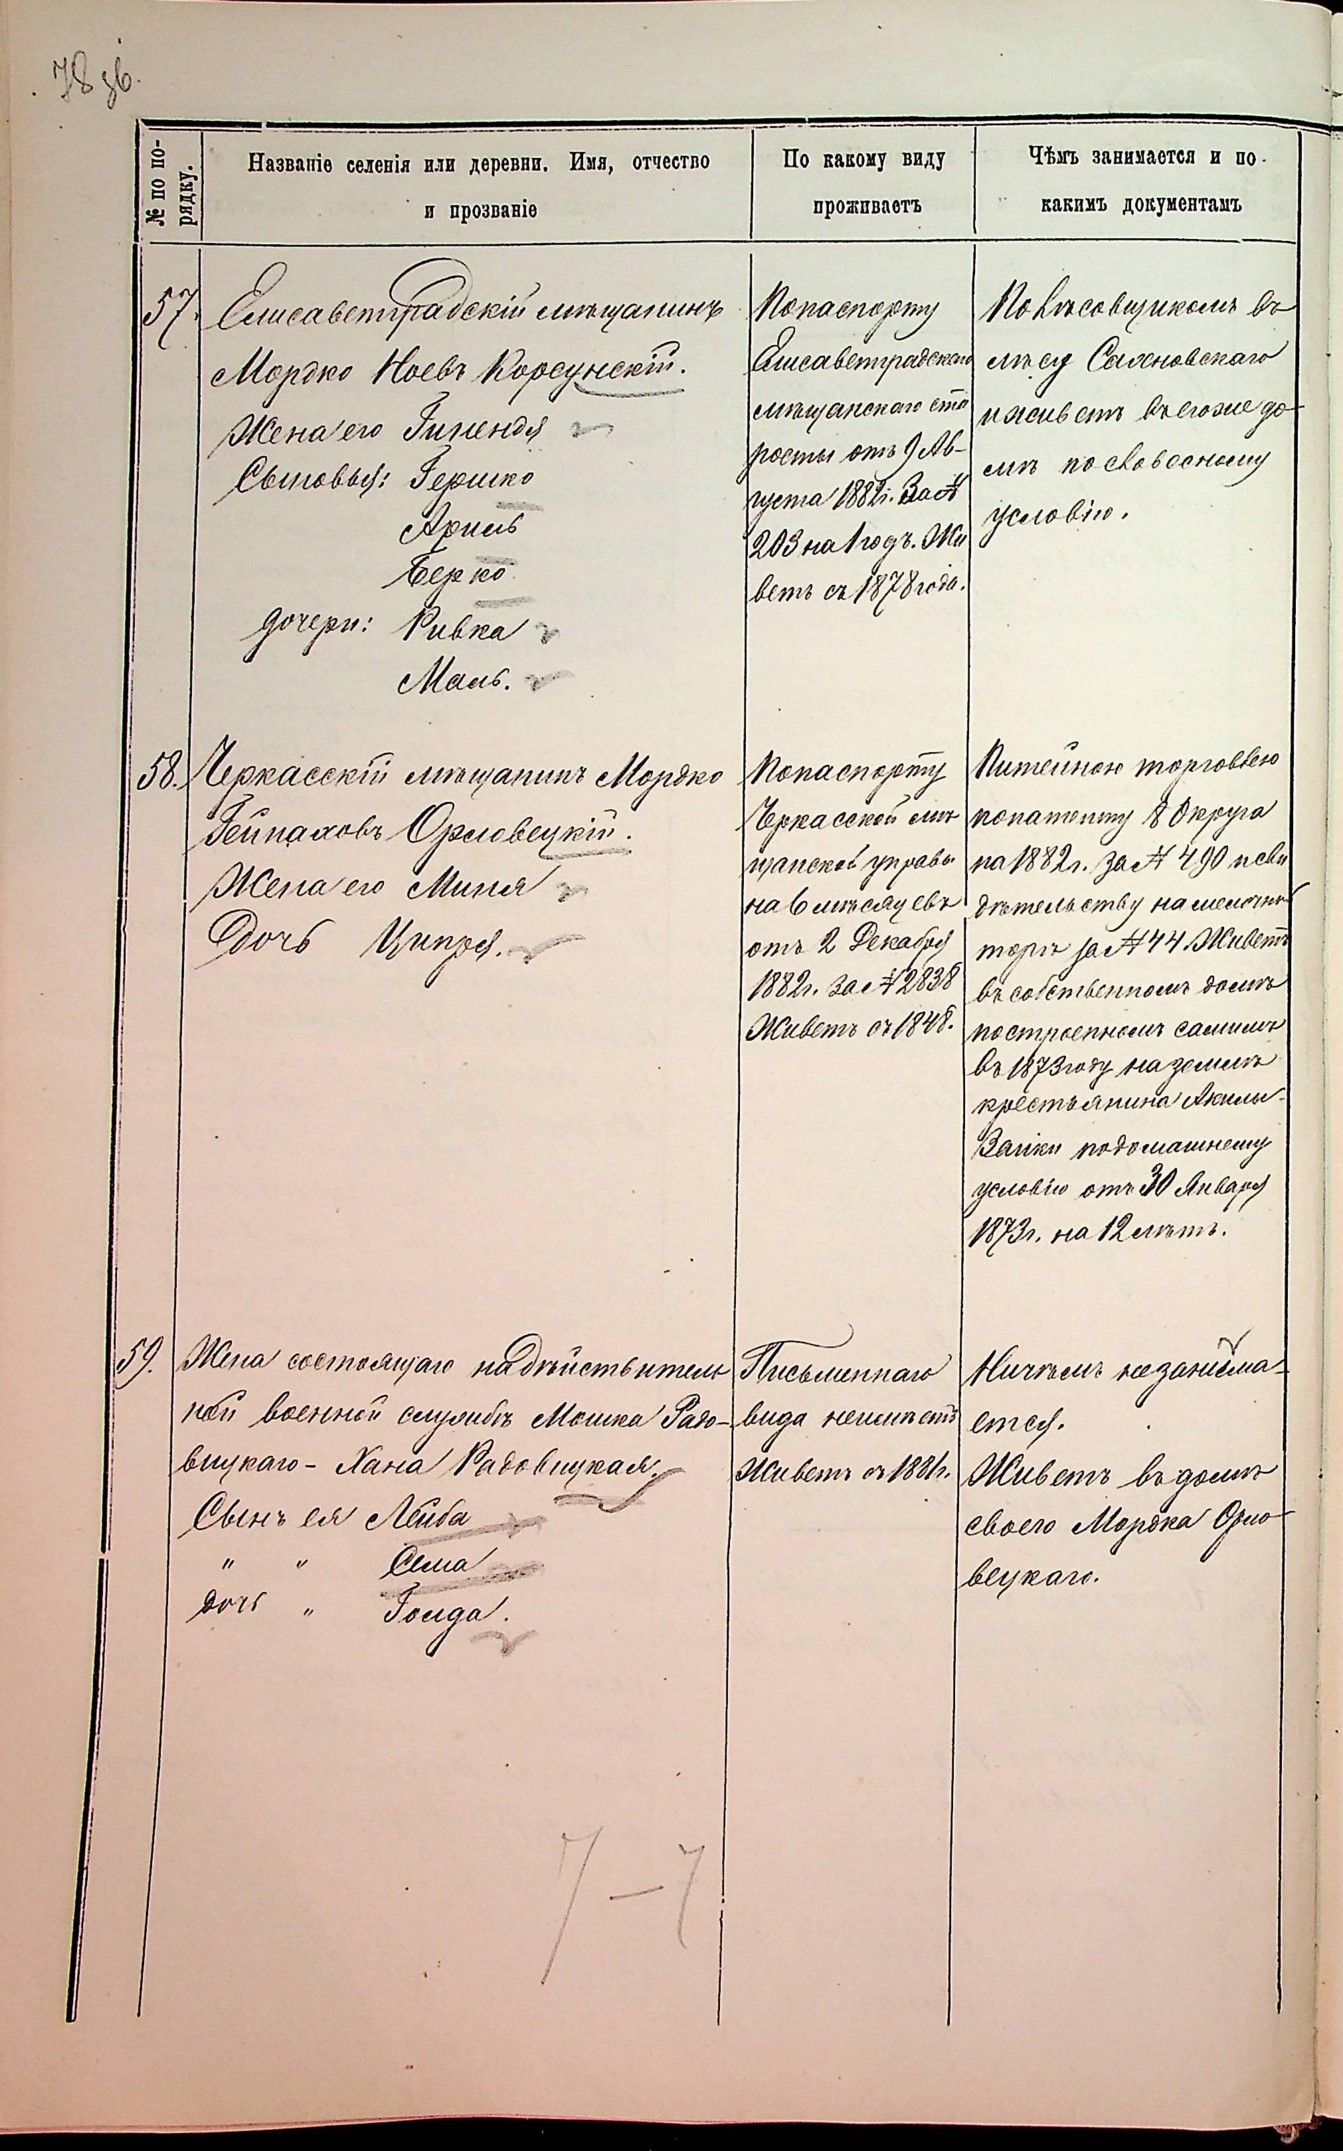 78 зв.
№ по по-
рядку.
Названіе селенія или деревни. Имя, отчество
и прозваніе
По какому виду
проживаетъ
Чѣмъ занимается и по
какимъ документамъ
57.
Елисаветградскій мѣщанинъ
Мордко Ноевъ Корсунскій.
Жена его Гинендя
Сыновья: Гершко
Ариль
Берко
дочери: Ривка
Маль.
По паспорту
Елисаветградскаго
мѣщанскаго ста
росты отъ 9 Ав-
густа 1882 г. За №
203 на 1 годъ. Жи
ветъ съ 1878 года.
Полѣсовщикомъ въ
лѣсу Сахновскаго
и живетъ въ егоже до-
мѣ по словесному
условію.
58.
Черкасскій мѣщанинъ Мордко
Гейнаховъ Орловецкій.
Жена его Миня
Дочь Ципря.
По паспорту
Черкасской мѣ
щанской управы
на 6 мѣсяцевъ
отъ 2 Декабря
1882 г. за № 2838
Живетъ съ 1848.
Питейною торговлею
по патенту 8 Округа
на 1882 г. за № 490 и сви
дѣтельству на мелочной
торгъ за № 44. Живетъ
въ собственномъ домѣ
построенномъ самимъ
въ 1873 году на землѣ
крестьянина Акилы
Заики по домашнему
условію отъ 30 Января
1873 г. на 12 лѣтъ.
59.
Жена состоящаго на дѣйствитель
ной военной службѣ Мошка Радо-
вицкаго - Хана Радовицкая.
Сынъ ея Лейба
" " Сема
дочь " Голда.
Письменнаго
вида неимѣетъ
Живетъ съ 1881 г.
Ничѣмъ не занима-
ется.
Живетъ въ домѣ
своего Мордка Орло-
вецкаго.
7 - 7